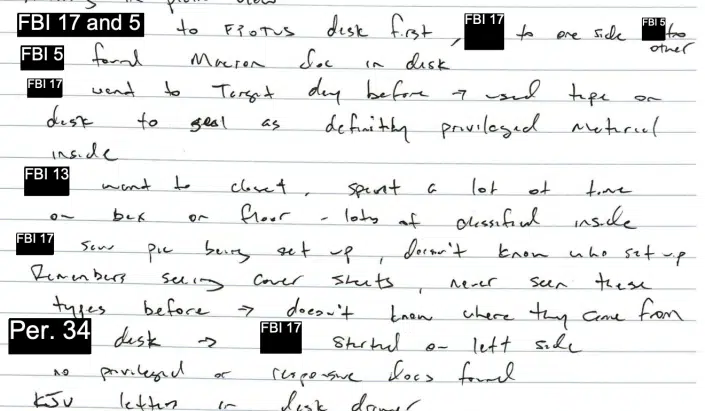 FBI 17 and 5 to FPOTUS desk first, FBI 17 to one side FBI 5 to other
FBI 5 found Macron doc in desk
FBI 17 went to Target day before → used tape on
desk to seal as definitely privileged material
inside
FBI 13 went to closet, spent a lot of time
on box on floor - lots of classified inside
FBI 17 saw pic being set up, doesn't know who set up
Remembers seeing cover sheets, never seen these
types before → doesn't know where they came from
Per. 34 desk → FBI 17 started on left side
no privileged or responsive docs found
KJU letters in desk drawer